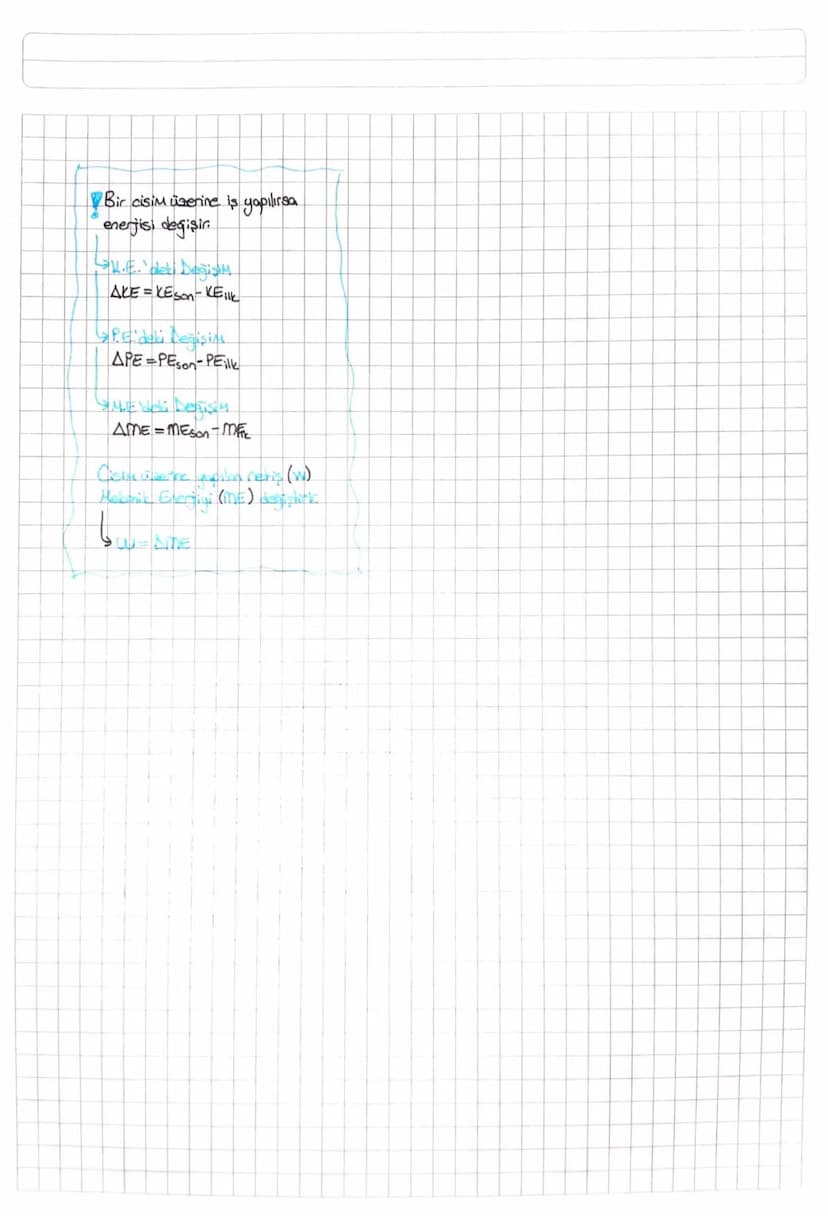 ! Bir cisim üzerine iş yapılırsa
enerjisi değişir.
↳ K.E.'deki Değişim
ΔKE = KEson - KEilk
↳ P.E'deki Değişim
ΔPE = PEson - PEilk
↳ M.E'deki Değişim
ΔME = MEson - MEilk
Cisim üzerine yapılan net iş (W)
Mekanik Enerjiyi (ME) değiştirir.
↳ W = ΔME